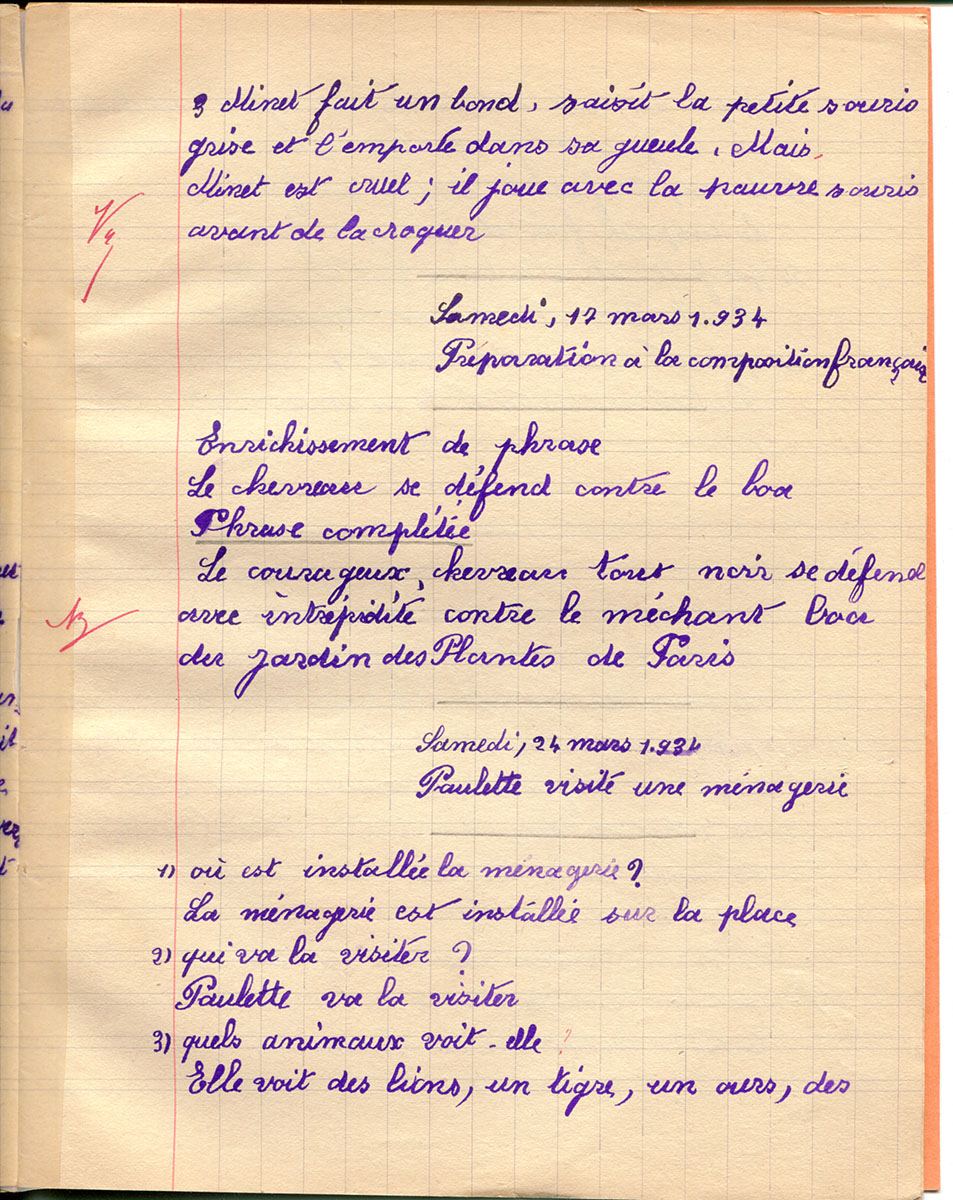 3 Minet fait un bond, saisit la petite souris
grise et l'emporte dans sa gueule. Mais
Minet est cruel; il joue avec la pauvre souris
avant de la croquer
Samedi, 17 mars 1.934
Préparation à la composition française
Enrichissement de phrase
Le chevreau se défend contre le boa
Phrase complétée
Le courageux, chevreau tout noir se défend
avec intrépidité contre le méchant boa
du jardin des Plantes de Paris
Samedi, 24 mars 1.934
Paulette visite une ménagerie
1) où est installée la ménagerie?
La ménagerie est installée sur la place
2) qui va la visiter ?
Paulette va la visiter
3) quels animaux voit-elle ?
Elle voit des lions, un tigre, un ours, des